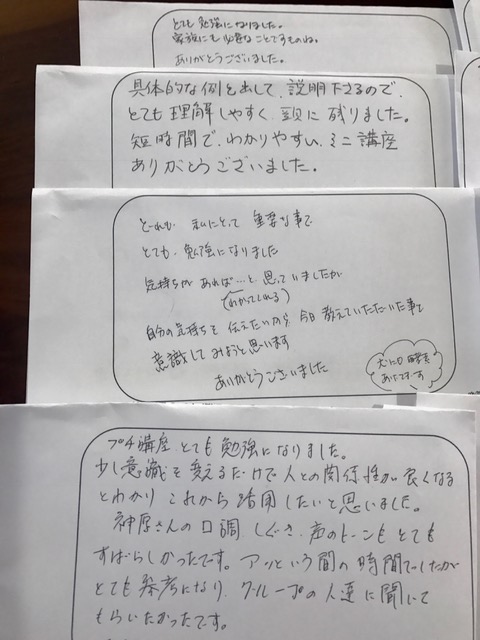 とても勉強になりました。
家族にも必要なことですものね。
ありがとうございました。
具体的な例を出して、説明下さるので、
とても理解しやすく、頭に残りました。
短時間で、わかりやすい、ミニ講座
ありがとうございました。
どれも、私にとって 重要な事で
とても、勉強になりました
気持ちが あれば…と、思っていましたが
(わかってくれる)
自分の気持ちを 伝えたいから、今日 教えていただいた事を
意識して みようと思います
ありがとうございました
プチ講座、とても勉強になりました。
少し意識を変えるだけで人との関係性が良くなる
とわかり これから活用したいと思いました。
神原さんの口調、しぐさ、声のトーンも とても
すばらしかったです。アッという間の時間でしたが
とても参考になり、グループの人達に聞いて
もらいたかったです。